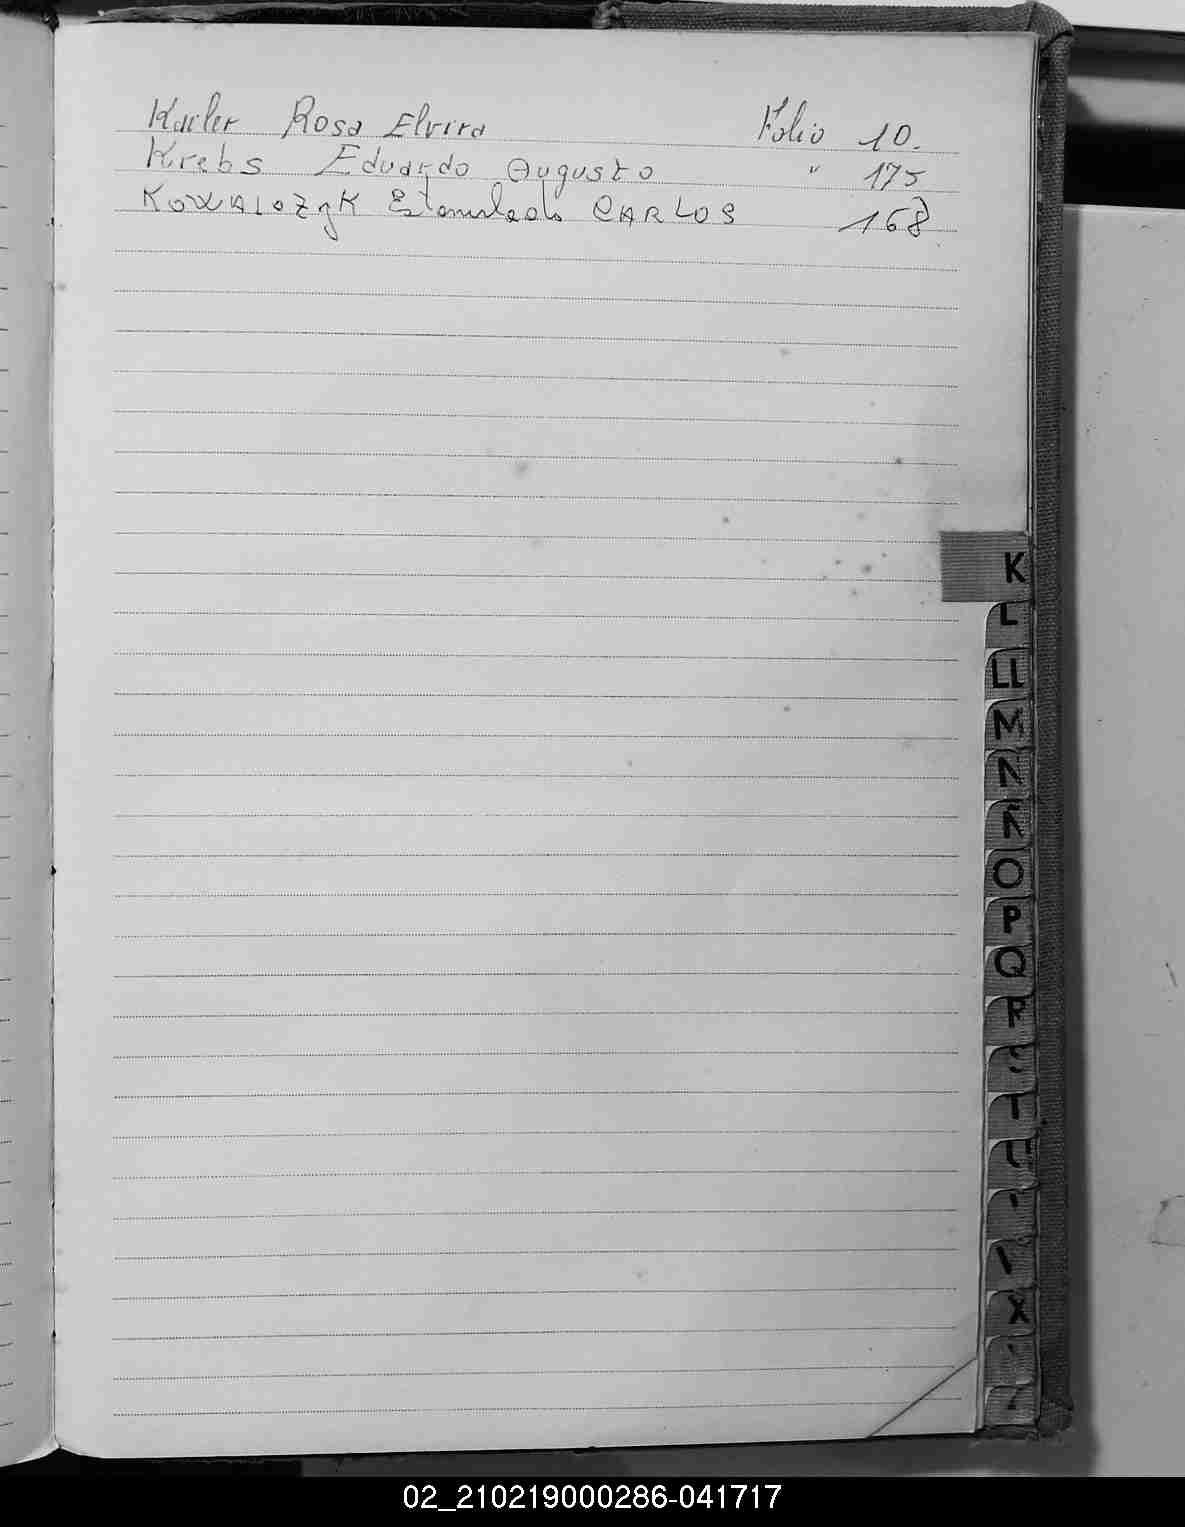 Karler Rosa Elvira Folio 10.
Krebs Eduardo Augusto " 175
KOWALOZyK Estanislado CARLOS 168
K
L
LL
M
N
Ñ
O
P
Q
R
S
T
X
Z
02_210219000286-041717